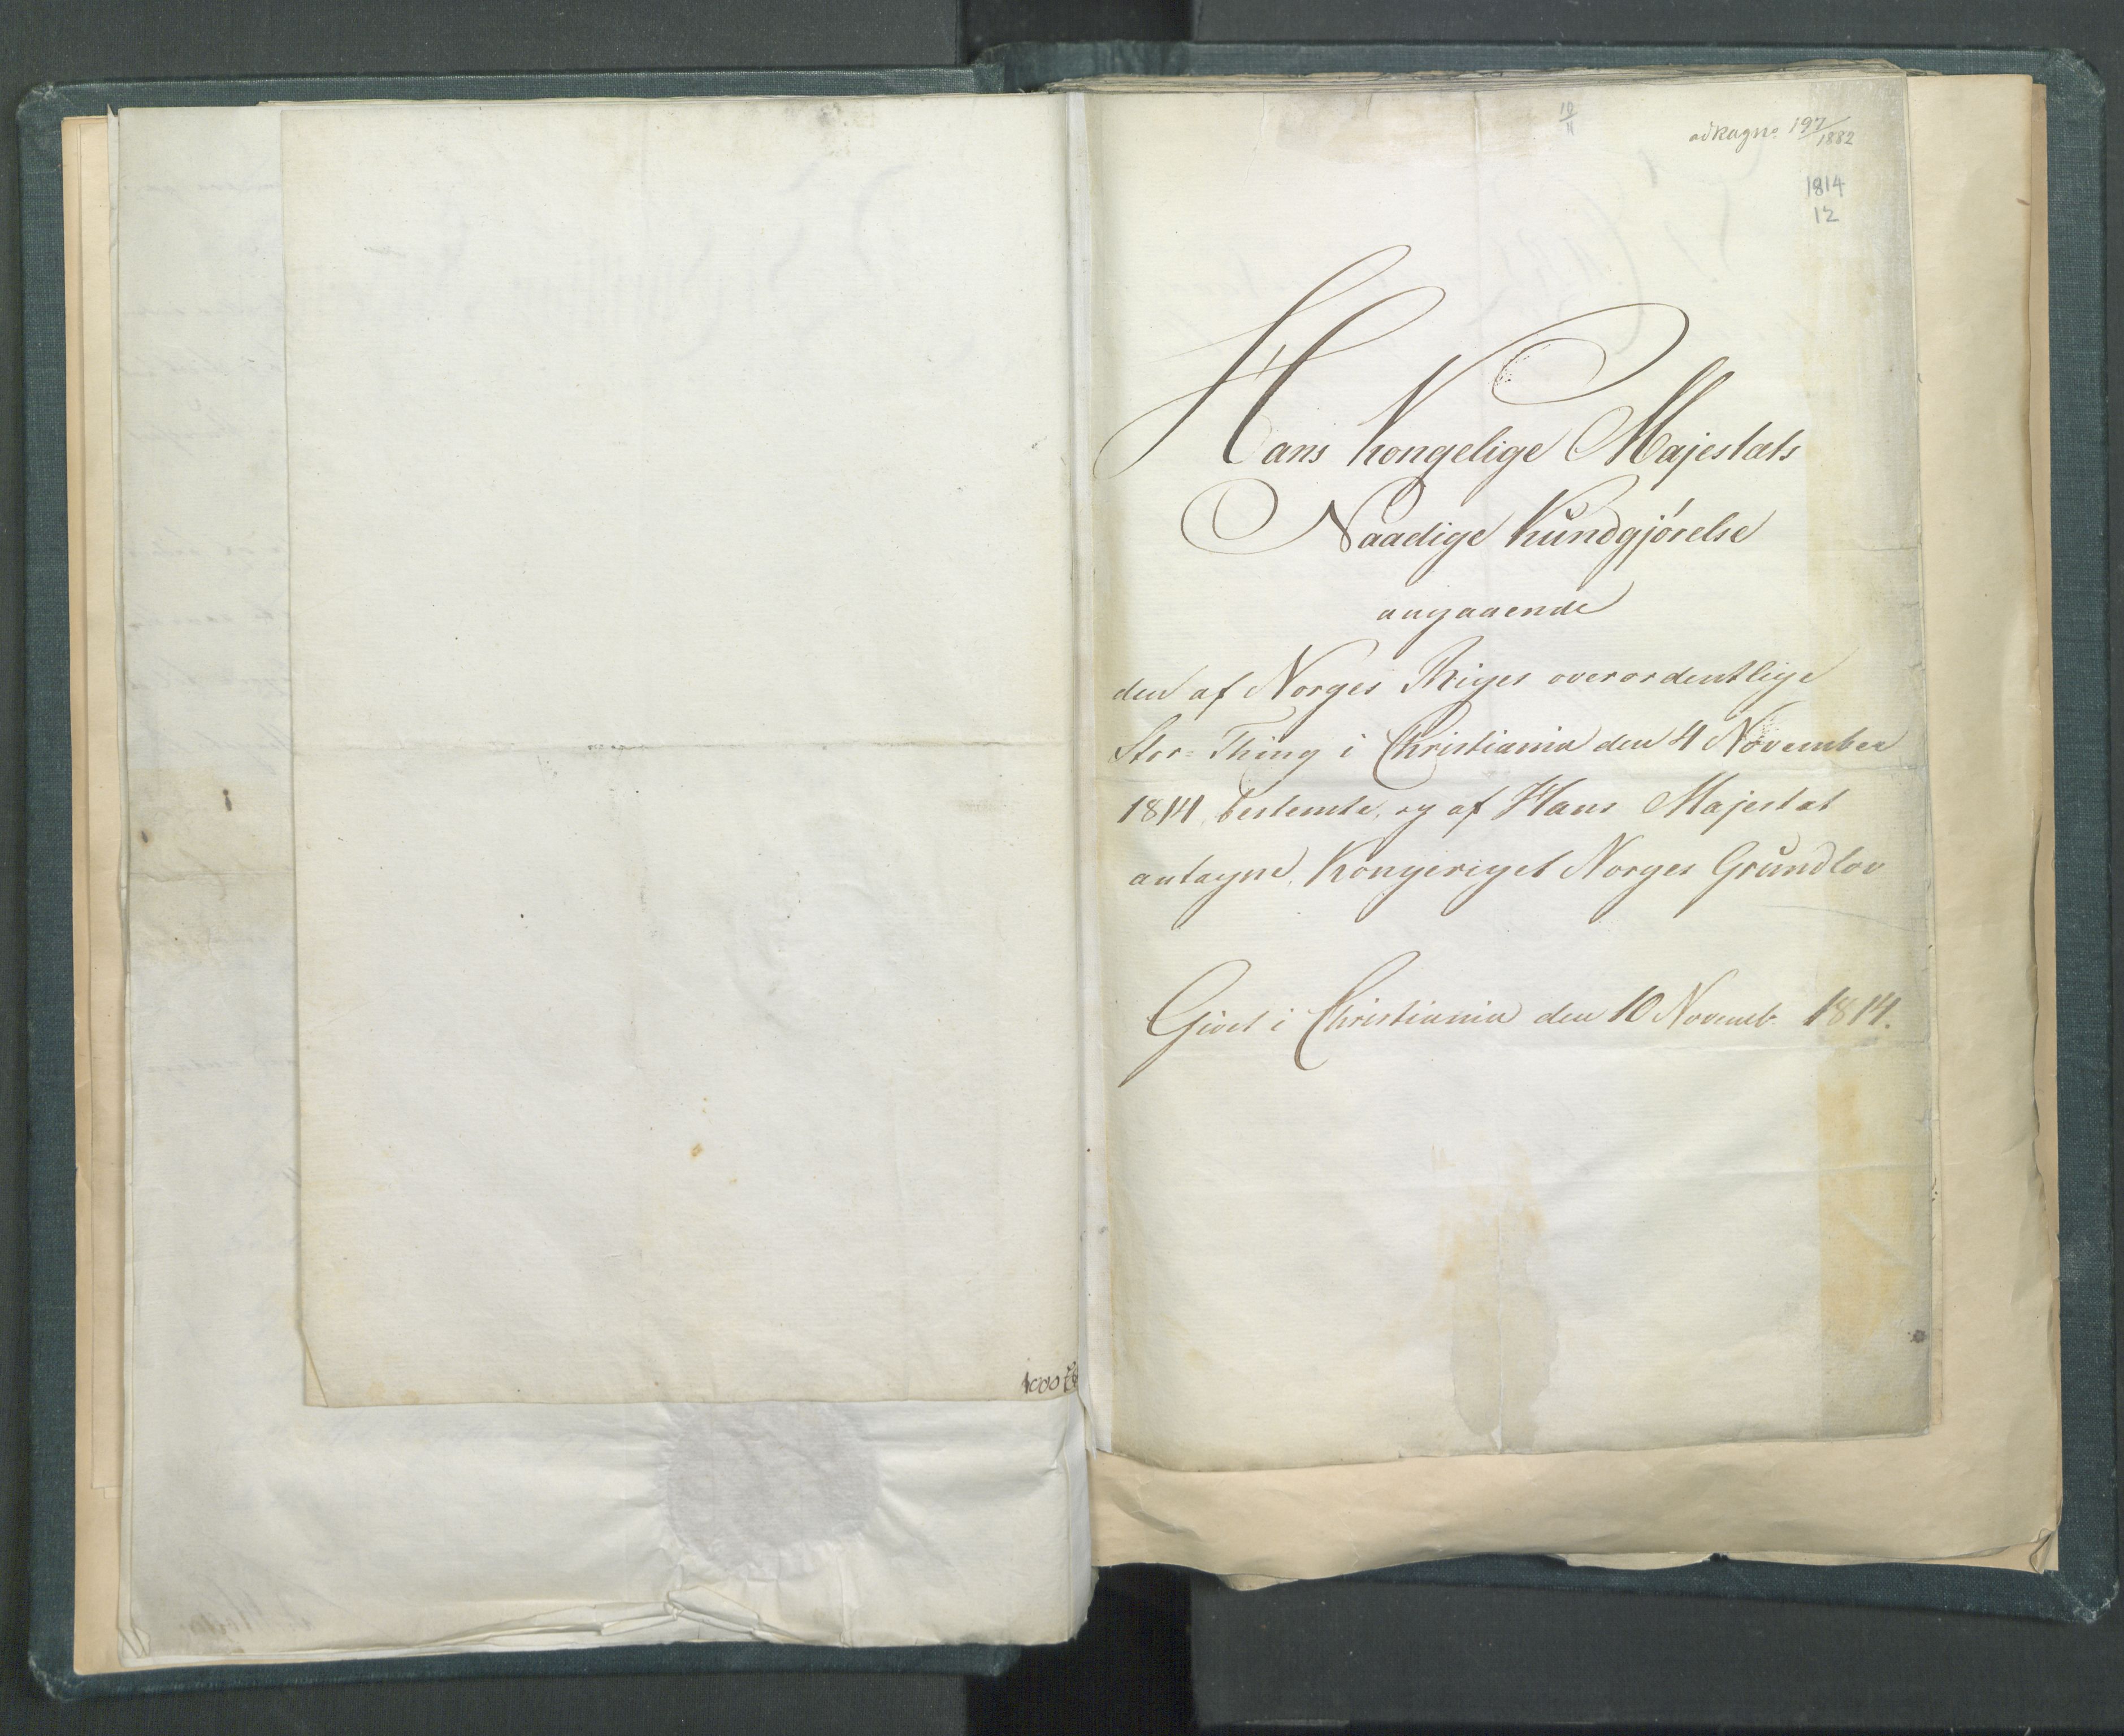 10/11
197/1882
1814
12
Hans Kongelige Majestæts
Naadige Kundgjørelse
angaaende
den af Norges Riges overordentlige
Stor-Thing i Christiania den 4 November
1814 bestemte, og af Hans Majestæt
antagne, Kongeriget Norges Grundlov
Givet i Christiania den 10 Novemb. 1814.